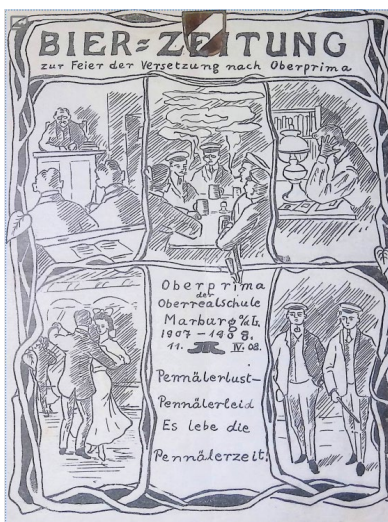 BIER=ZEITUNG
zur Feier der Versetzung nach Oberprima
Oberprima
der
Oberrealschule
Marburg a/L.
1907-1908.
11. IV. 08.
Pennälerlust-
Pennälerleid
Es lebe die
Pennälerzeit!